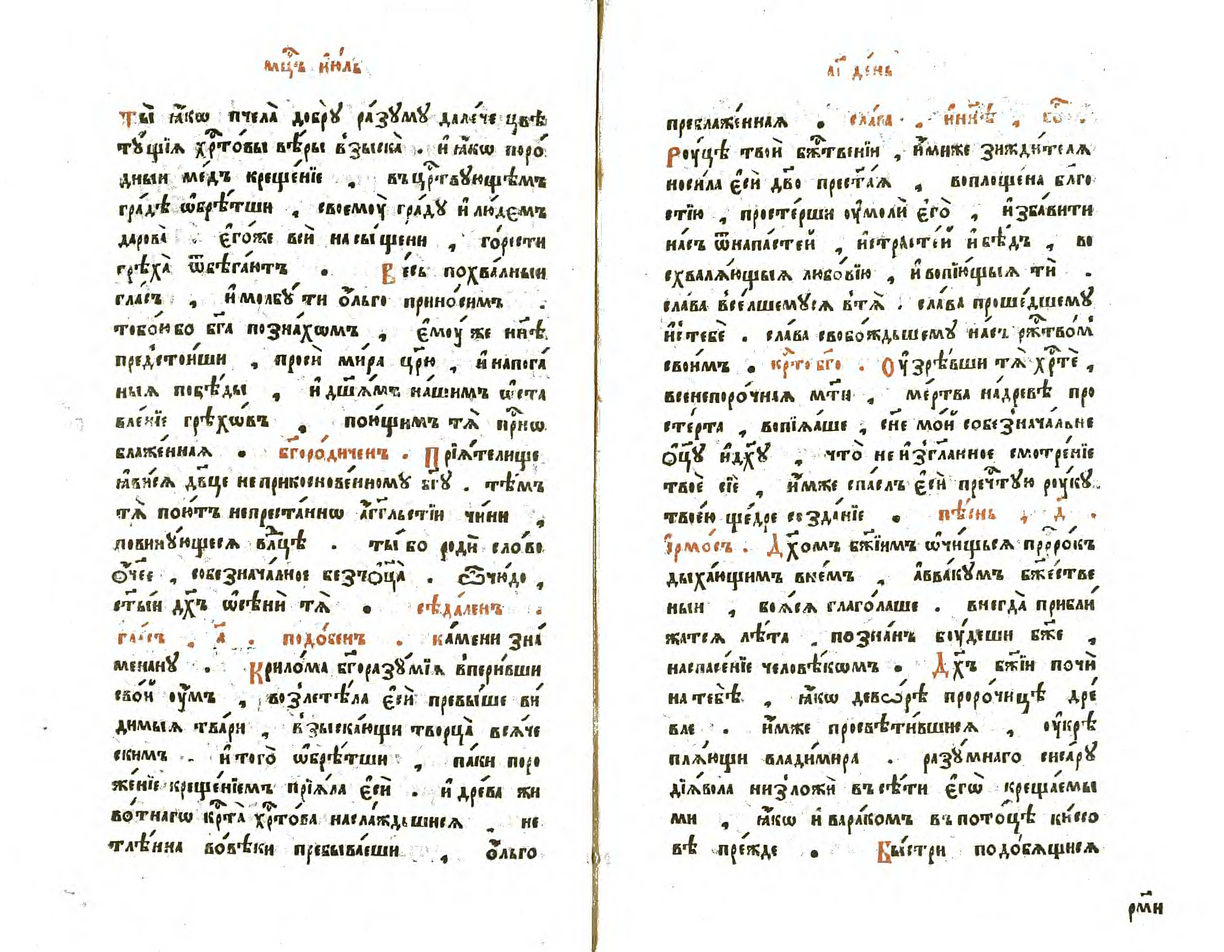 мц҃ъ і҆ю́ль
Ты̀ ꙗ҆́кѡ пчела̀ до́брꙋ ра́зꙋмꙋ дале́че цвѣ
тꙋ́щїѧ хрⷭ҇то́вы вѣ́ры в̾зыска̀ . и҆ ꙗ҆́кѡ поро́
дныи ме́дъ креще́нїе , въ црⷭ҇твꙋющѣмъ
гра́дѣ ѡ҆брѣ́тши , своемоу̀ гра́дꙋ и҆ лю́демъ
дарова̀ є҆го́же всѝ насы́щени , го́рести
грѣха̀ ѿбѣга́ютъ . Ве́сь похва́лныи
гла́съ , и҆ молбꙋ́ ти ѻ҆́льго прино́симъ .
тобо́ю бо бг҃а позна́хѡмъ , є҆моу́же нн҃ѣ
предⸯстои́ши , просѝ ми́ра цр҃ю̀ , и҆ на пога́
ныѧ побѣ́ды , и҆ дш҃а́мъ на́шимъ ѡ҆ста
вле́нїе грѣхѡ́въ , пою́щимъ тѧ̀ при́снѡ
блаже́ннаѧ . бг҃оро́диченъ . Прїѧ́телище
ꙗ҆ви́сѧ дв҃це неприкоснове́нномꙋ бг҃ꙋ . тѣ́мъ
тѧ̀ пою́тъ непреста́ннѡ а҆́гг҃льстїи чи́ни ,
повинꙋ́ющесѧ влⷣцѣ . ты́ бо родѝ сло́во
ѻ҆́ч҃ее , собезнача́лное безъ ѻ҆ц҃а̀ . ѽ чю́до ,
ст҃ы́и дх҃ъ ѡ҆сѣнѝ тѧ̀ . сѣда́ленъ .
гла́съ . а҃ . подо́бенъ . ка́мени зна́
менанꙋ . Крило́ма бг҃оразꙋ́мїѧ в̾пери́вши
сво́й оу҆́мъ , воз̾летѣ́ла є҆сѝ превы́ше ви́
димыѧ тва́ри , в̾зыска́ющи творца̀ всѧ́че
скимъ . и҆ того̀ ѡ҆брѣ́тши , па́ки поро
же́нїе креще́нїемъ прїѧ́ла є҆сѝ . и҆ дре́ва жи
во́тнагѡ крⷭ҇та̀ хрⷭ҇то́ва наслажⸯдьшисѧ , не
тлѣ́нна во́вѣки пребыва́еши , ѻ҆́льго
а҃і де́нь
преблаже́ннаѧ . сла́ва . и҆ нн҃ѣ , бо҃ .
Роуцѣ̀ твоѝ бжⷭ҇твенїи , и҆́миже зижди́телѧ
носи́ла є҆сѝ дв҃о прест҃а́ѧ , воплоще́на бл҃го
стїю , просте́рши оу҆молѝ є҆го̀ , и҆зба́вити
на́съ ѿ напа́стей , и҆ страсте́й и҆ бѣ́дъ , во
схвалѧ́ющыѧ любо́вїю , и҆ вопїю́щыѧ тѝ .
сла́ва всⸯе́лшемꙋсѧ в̾ тѧ̀ . сла́ва проше́дшемꙋ
и҆с̾ тебѐ . сла́ва свобо́ждьшемꙋ на́съ ржⷭ҇тво́мⸯ
свои́мъ . крⷭ҇тобг҃о . Оу҆зрѣ́вши тѧ̀ хрⷭ҇тѐ ,
всенепоро́чнаѧ мт҃и , ме́ртва на́ древѣ про
сте́рта , вопїѧ́аше , сн҃е мо́й собезнача́лне
ѻ҆ц҃ꙋ̀ и҆ дх҃ꙋ , что̀ неи҆з̾гл҃анное смотре́нїе
твоѐ сїѐ , и҆́мже спа́слъ є҆сѝ пречⷭ҇тꙋю роу́кꙋ
твое́ю ще́дре созда́нїе . пѣ́снь , д҃ .
І҆рмо́съ . Дх҃омъ бж҃їимъ ѡ҆чи́щьсѧ прⷪ҇ро́къ
дыха́ющимъ в̾не́мъ , а҆ввакꙋ́мъ бж҃е́стве
ныи , боѧ́сѧ глаго́лаше . внегда̀ прибли́
жатсѧ лѣ́та , позна́нъ боу́деши бж҃е ,
на спасе́нїе человѣ́кѡмъ . Дх҃ъ бж҃їи почѝ
на тебѣ̀ , ꙗ҆́кѡ девѡ́рѣ проро́чицѣ дре́
вле . и҆́мже просвѣти́вшисѧ , оу҆крѣ
плѧ́ющи влади́мира . ра́зꙋмнаго сиса́рꙋ
дїѧ́вола низложѝ въ сѣ́ти є҆гѡ̀ креща́емы
ми , ꙗ҆́кѡ и҆ вара́комъ въ пото́цѣ ки́ссо
вѣ пре́жде . Бы́стри подобѧ́щиисѧ
рм҃и